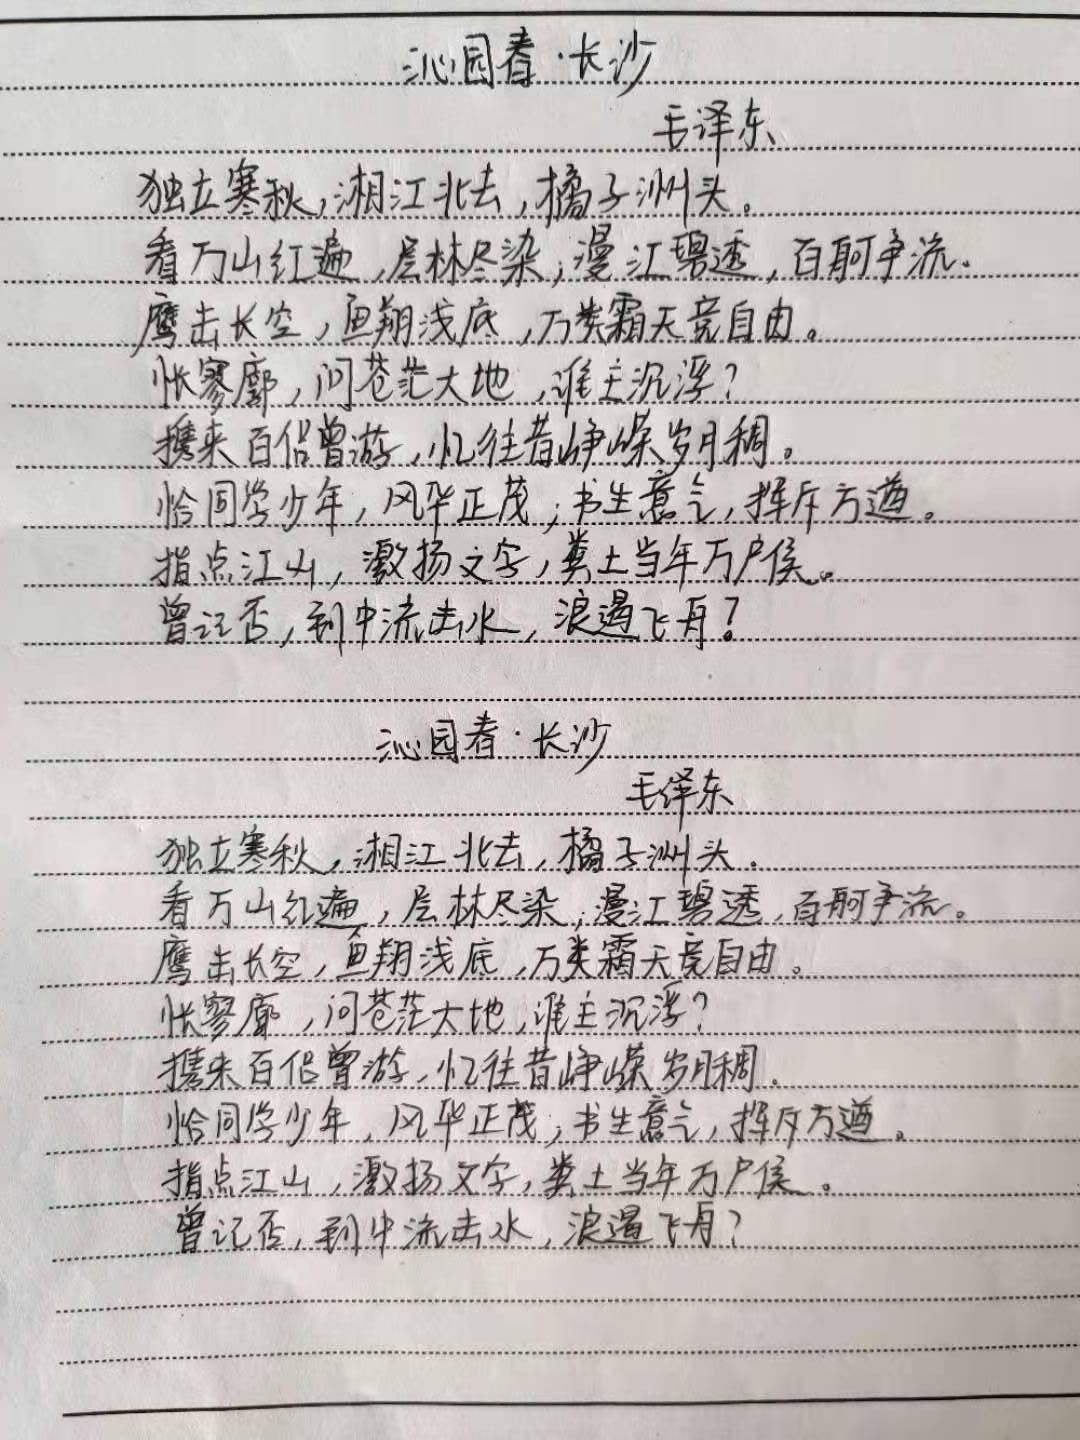 沁园春·长沙
毛泽东
独立寒秋，湘江北去，橘子洲头。
看万山红遍，层林尽染；漫江碧透，百舸争流。
鹰击长空，鱼翔浅底，万类霜天竞自由。
怅寥廓，问苍茫大地，谁主沉浮？
携来百侣曾游，忆往昔峥嵘岁月稠。
恰同学少年，风华正茂；书生意气，挥斥方遒。
指点江山，激扬文字，粪土当年万户侯。
曾记否，到中流击水，浪遏飞舟？
沁园春·长沙
毛泽东
独立寒秋，湘江北去，橘子洲头。
看万山红遍，层林尽染；漫江碧透，百舸争流。
鹰击长空，鱼翔浅底，万类霜天竞自由。
怅寥廓，问苍茫大地，谁主沉浮？
携来百侣曾游，忆往昔峥嵘岁月稠。
恰同学少年，风华正茂；书生意气，挥斥方遒。
指点江山，激扬文字，粪土当年万户侯。
曾记否，到中流击水，浪遏飞舟？